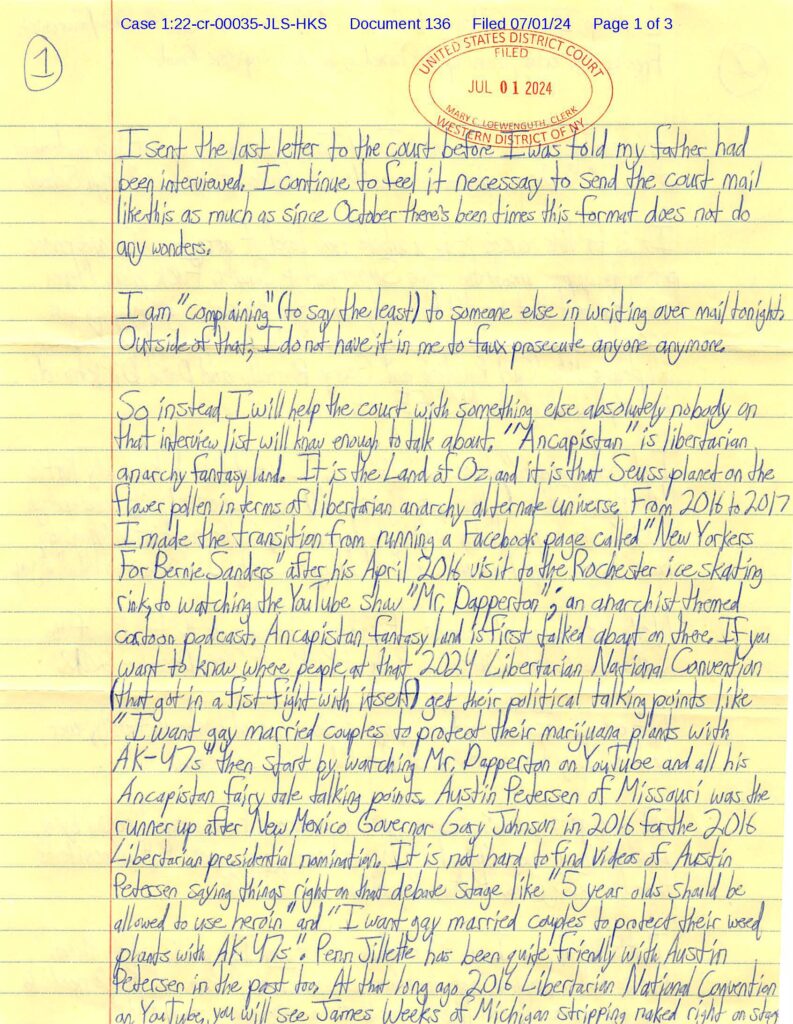 Case 1:22-cr-00035-JLS-HKS Document 136 Filed 07/01/24 Page 1 of 3
1
UNITED STATES DISTRICT COURT
FILED
JUL 01 2024
MARY C. LOEWENGUTH, CLERK
WESTERN DISTRICT OF NY
I sent the last letter to the court before I was told my father had
been interviewed. I continue to feel it necessary to send the court mail
like this as much as since October there's been times this format does not do
any wonders.
I am "complaining" (to say the least) to someone else in writing over mail tonight.
Outside of that, I do not have it in me to faux prosecute anyone anymore.
So instead I will help the court with something else absolutely nobody on
that interview list will know enough to talk about. "Ancapistan" is libertarian
anarchy fantasy land. It is the Land of Oz, and it is that Seuss planet on the
flower pollen in terms of libertarian anarchy alternate universe. From 2016 to 2017
I made the transition from running a Facebook page called "New Yorkers
For Bernie Sanders" after his April 2016 visit to the Rochester ice skating
rink, to watching the YouTube show "Mr. Dapperton"; an anarchist themed
cartoon podcast. Ancapistan fantasy land is first talked about on there. If you
want to know where people at that 2024 Libertarian National Convention
(that got in a fist-fight with itself) get their political talking points like
"I want gay married couples to protect their marijuana plants with
AK-47s" then start by watching Mr. Dapperton on YouTube and all his
Ancapistan fairy tale talking points. Austin Petersen of Missouri was the
runner up after New Mexico Governor Gary Johnson in 2016 for the 2016
Libertarian presidential nomination. It is not hard to find videos of Austin
Petersen saying things right on that debate stage like "5 year olds should be
allowed to use heroin" and "I want gay married couples to protect their weed
plants with AK 47s". Penn Jillette has been quite friendly with Austin
Petersen in the past too. At that long ago 2016 Libertarian National Convention
on YouTube, you will see James Weeks of Michigan stripping naked right on stag